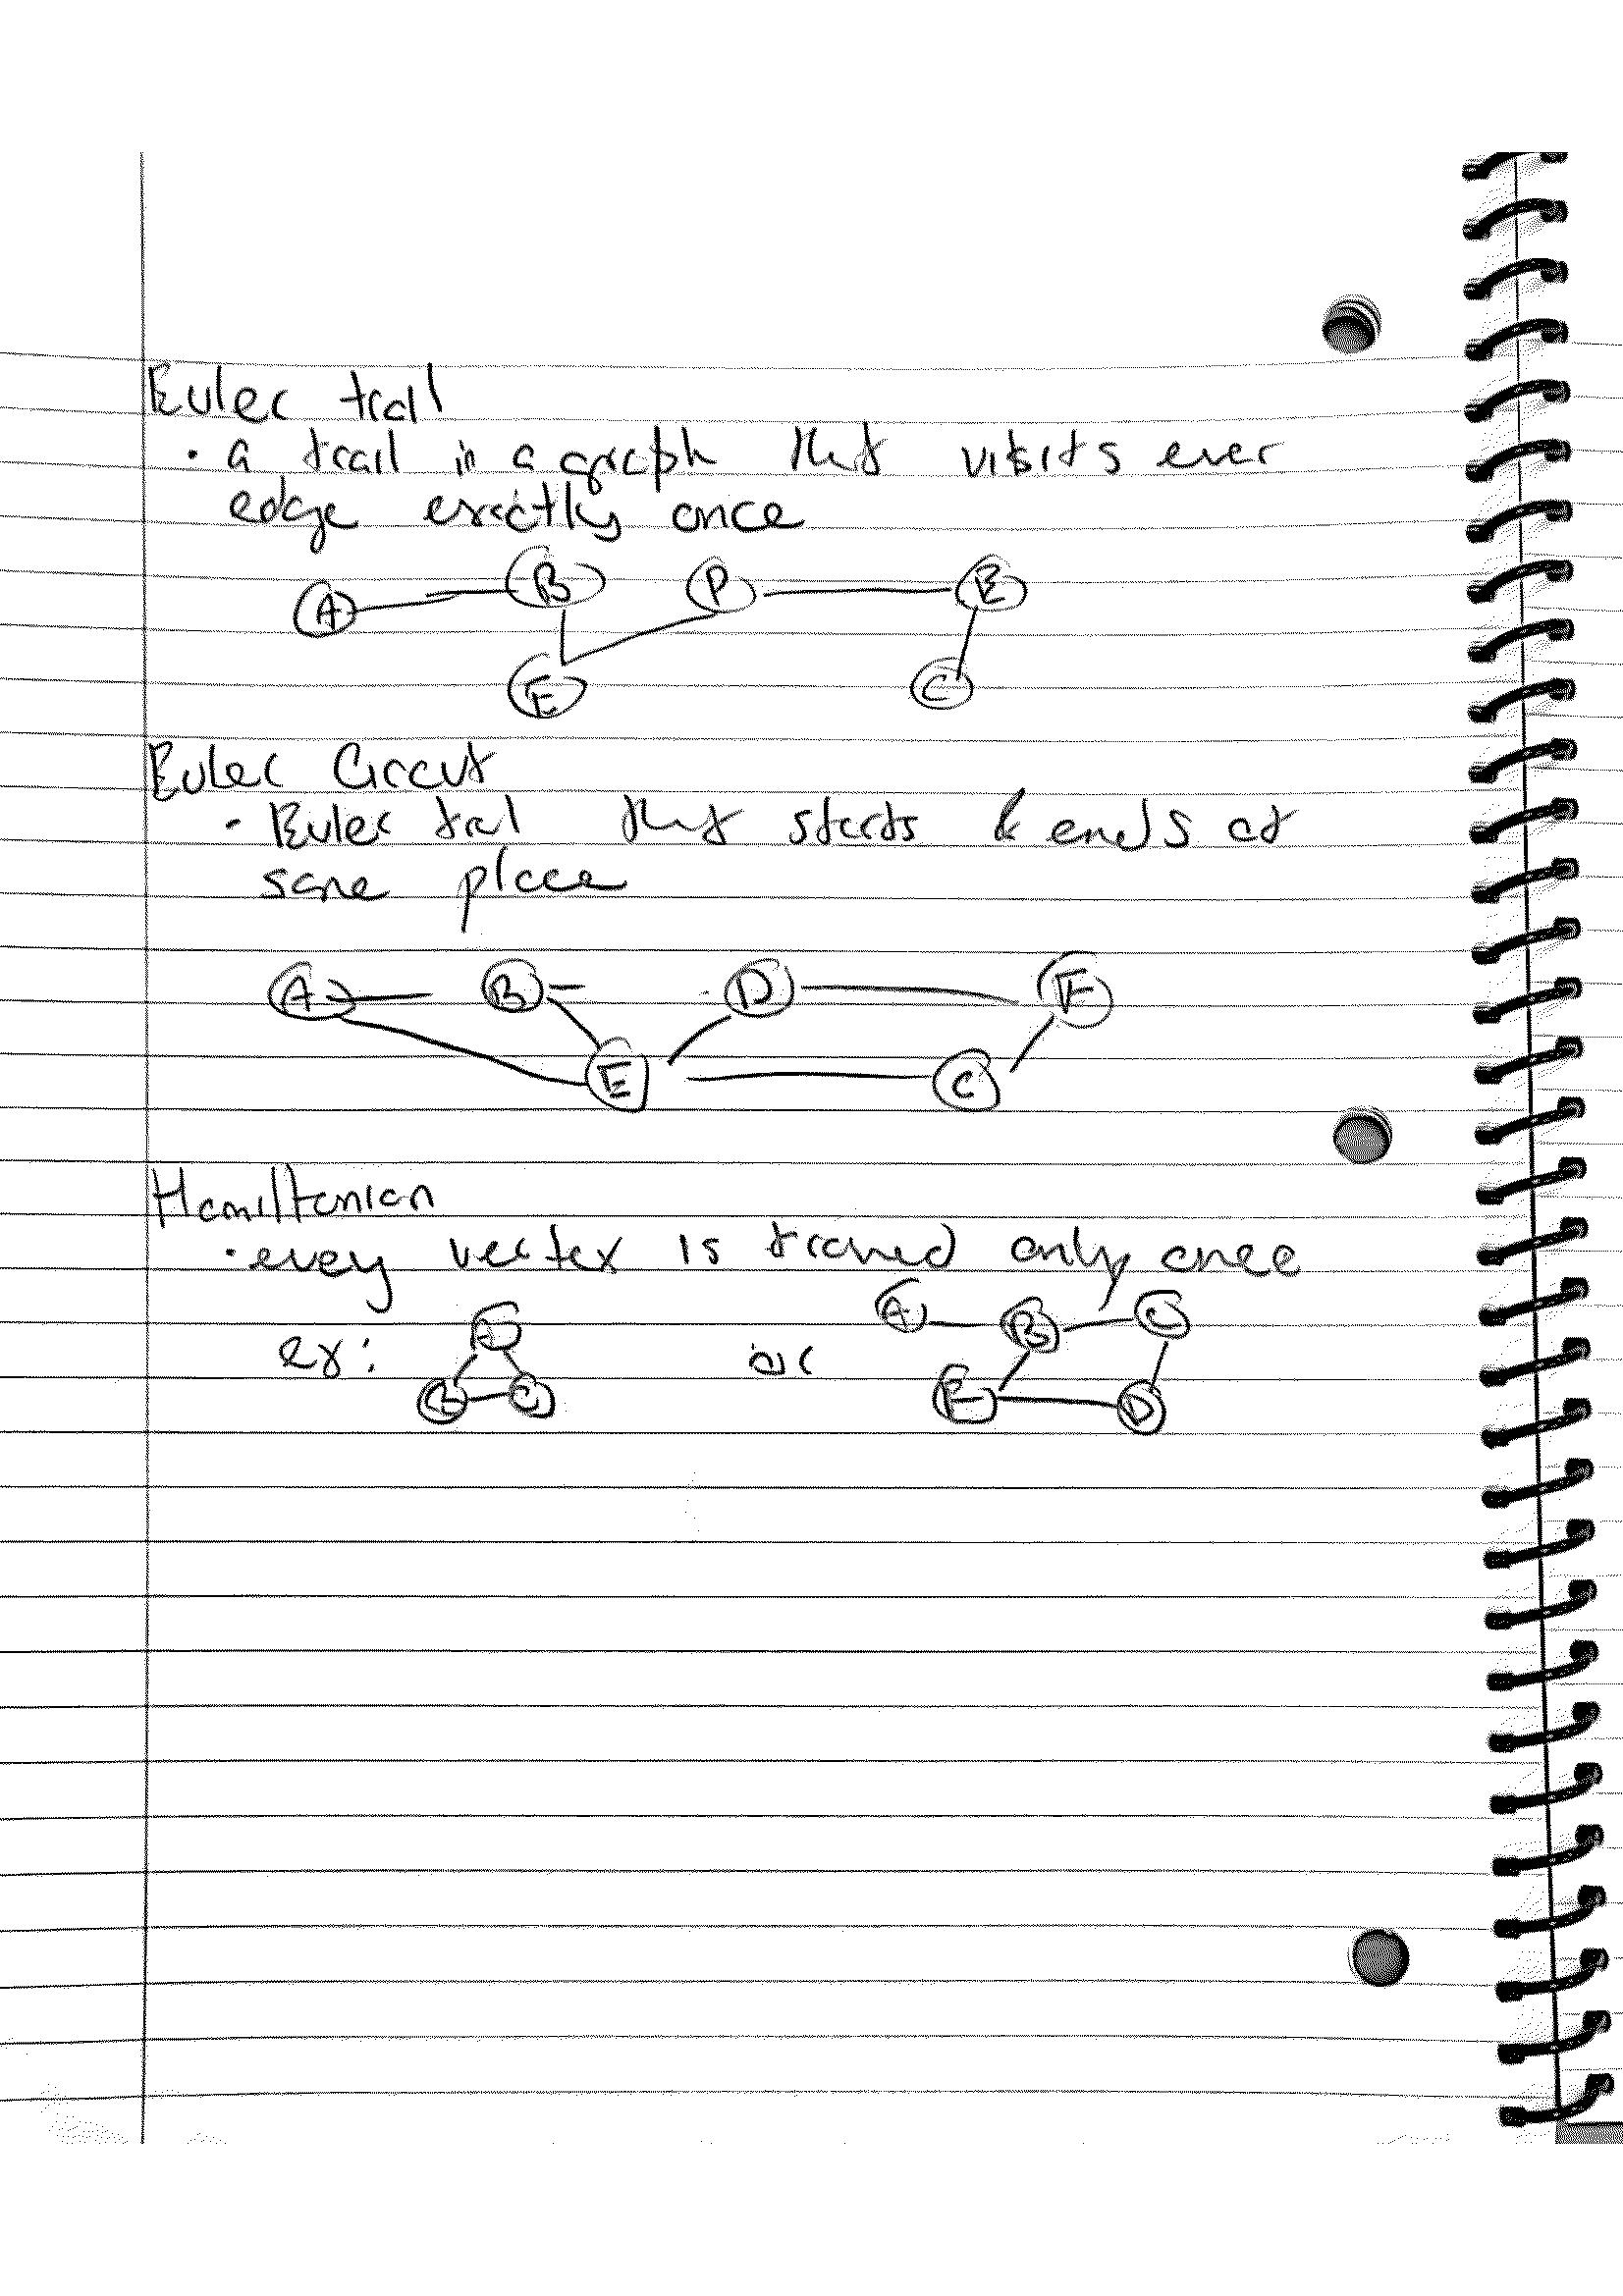 Euler trail
• a trail in a graph that visits ever
edge exactly once
A B P E
E C
Euler Circut
• Euler tral that starts & ends at
same place
A B D F
E C
Hamiltonian
• every vertex is only once
A B C
ex: or
B C E D